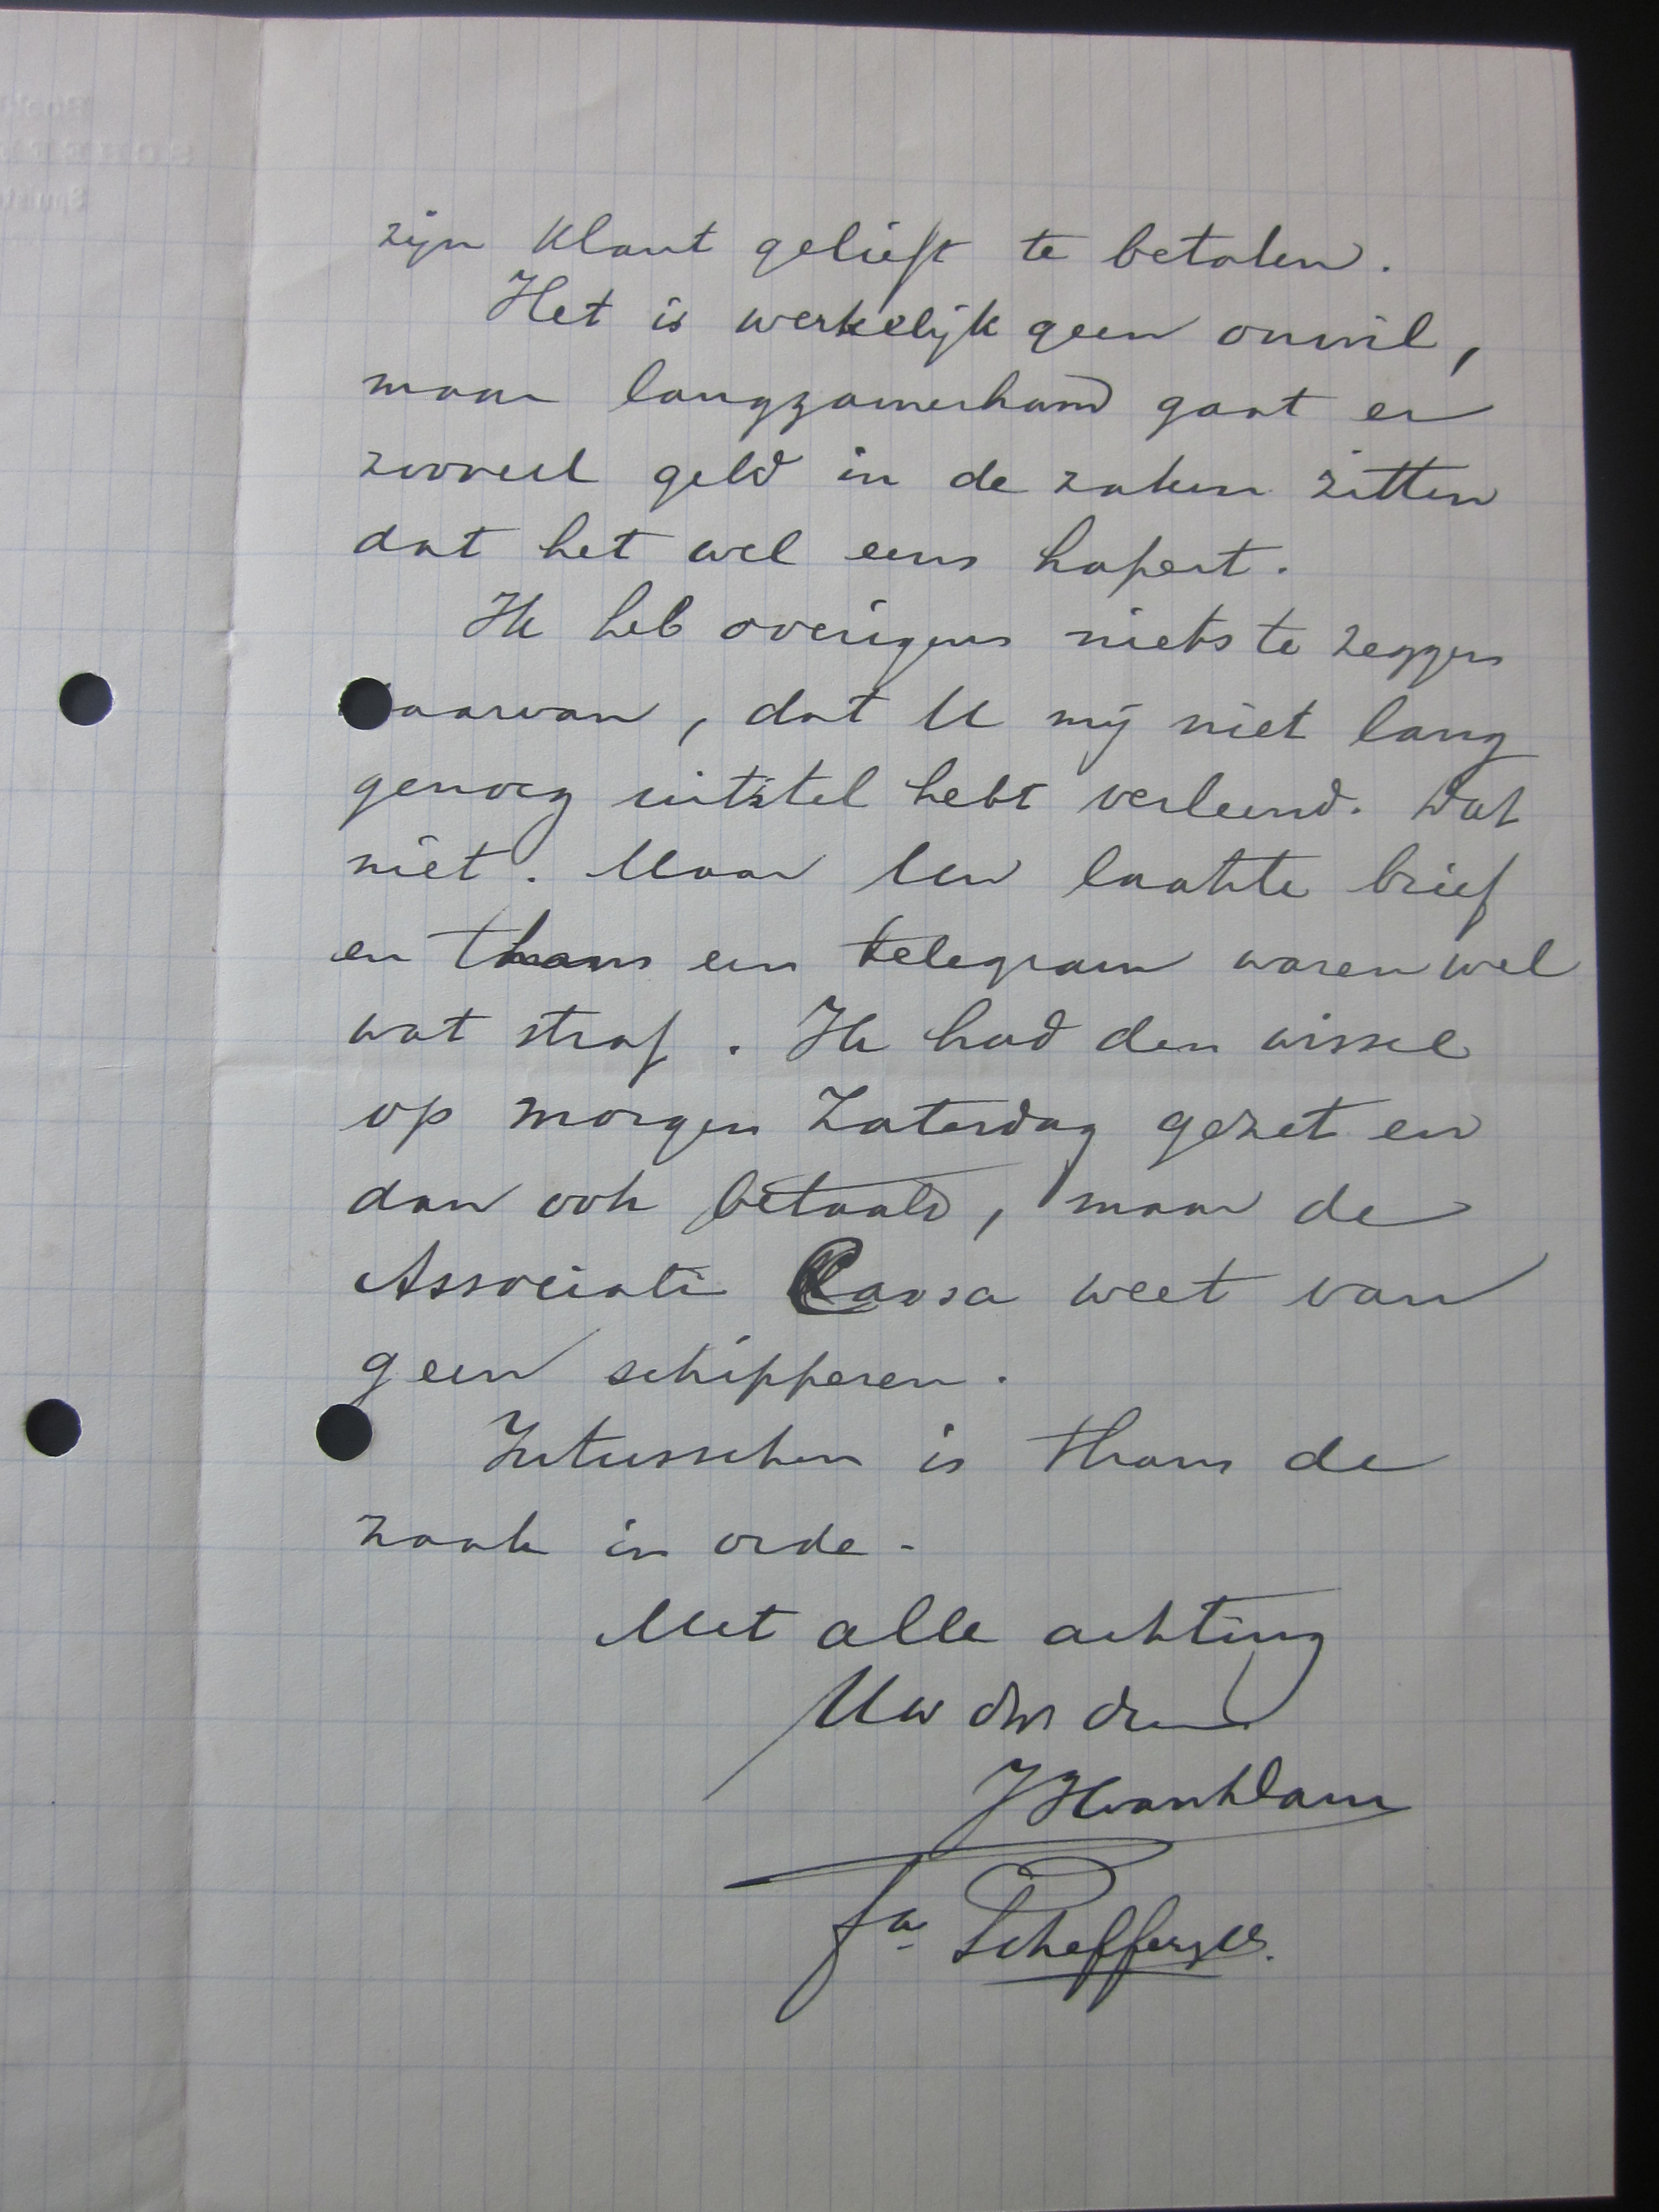 zijn klant gelieft te betalen.
Het is werkelijk geen onwil,
maar langzamerhand gaat er
zooveel geld in de zaken zitten
dat het wel eens hapert.
Ik heb overigens niets te zeggen
daarvan, dat U mij niet lang
genoeg uitstel hebt verleend. Dat
niet. Maar Uw laatste brief
en thans een telegram waren wel
wat straf. Ik had den wissel
op morgen Zaterdag gezet en
dan ook betaald, maar de
Associatie Cassa weet van
geen schipperen.
Intusschen is thans de
zaak in orde.
Met alle achting
Uw dw dn
fa Scheffer